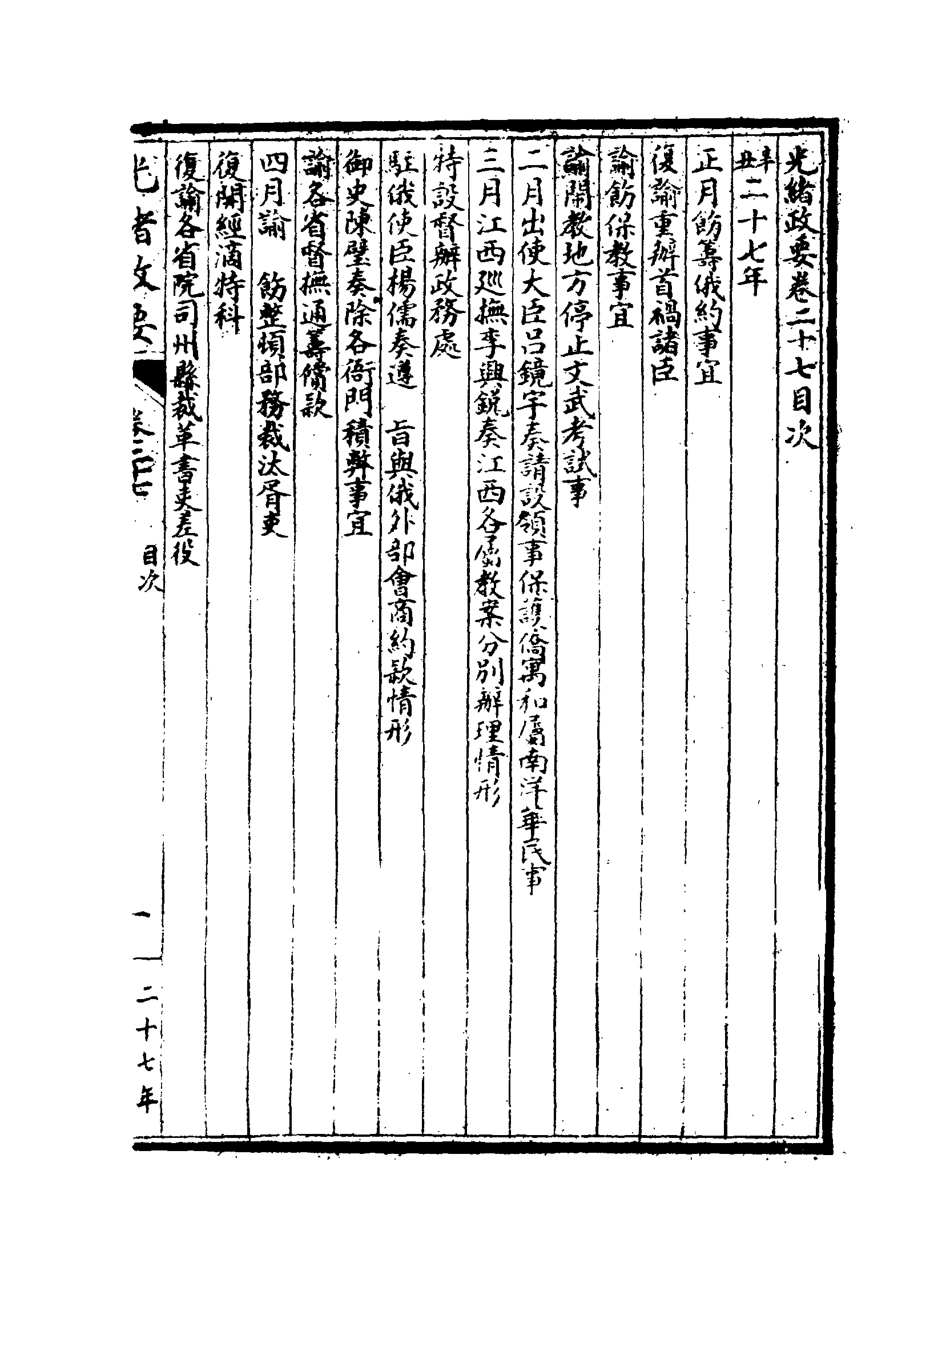 光緒政要卷二十七目次
辛丑二十七年
正月飭籌俄約事宜
復諭重辦首禍諸臣
諭飭保教事宜
諭鬧教地方停止文武考試事
二月出使大臣呂鏡宇奏請設領事保護僑寓和屬南洋華民事
三月江西巡撫李興銳奏江西各屬教案分別辦理情形
特設督辦政務處
駐俄使臣楊儒奏遵　旨與俄外部會商約款情形
御史陳璧奏除各衙門積弊事宜
諭各省督撫通籌償款
四月諭　飭整頓部務裁汰胥吏
復開經濟特科
復諭各省院司州縣裁革書吏差役
光緒政要　卷二十七　目次　一　二十七年